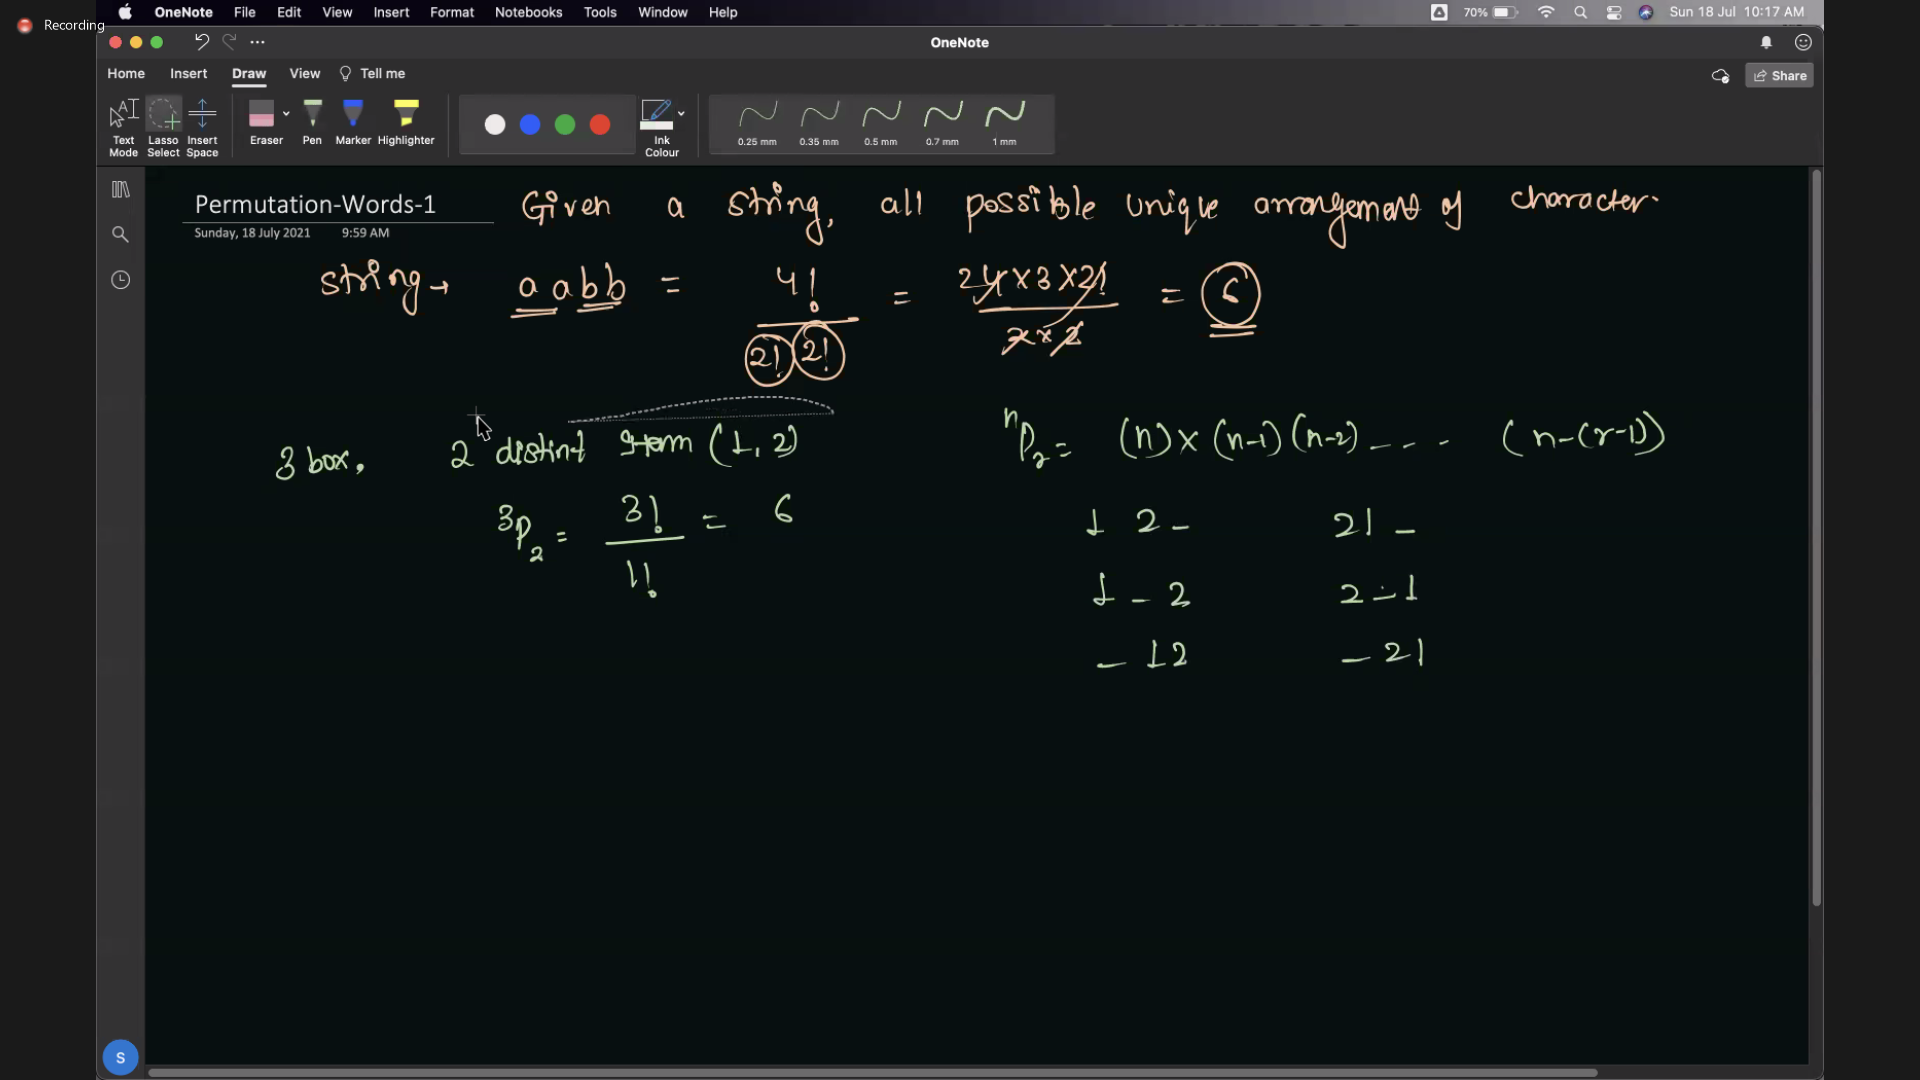 Recording
OneNote File Edit View Insert Format Notebooks Tools Window Help 70% Sun 18 Jul 10:17 AM
OneNote
Home Insert Draw View Tell me Share
Text Mode Lasso Select Insert Space Eraser Pen Marker Highlighter Ink Colour 0.25 mm 0.35 mm 0.5 mm 0.7 mm 1 mm
Permutation-Words-1 Given a string, all possible unique arrangement of character.
Sunday, 18 July 2021 9:59 AM
string → a a b b = 4! / 2! 2! = 24 x 3 x 2! / 2 x 2 = 6
3 box. 2 distint (1, 2) nP2 = (n) x (n-1) (n-2) - - - - (n-(r-1))
3P2 = 3! / 1! = 6
1 2 - 2 1 -
1 - 2 2 - 1
- 1 2 - 2 1
S